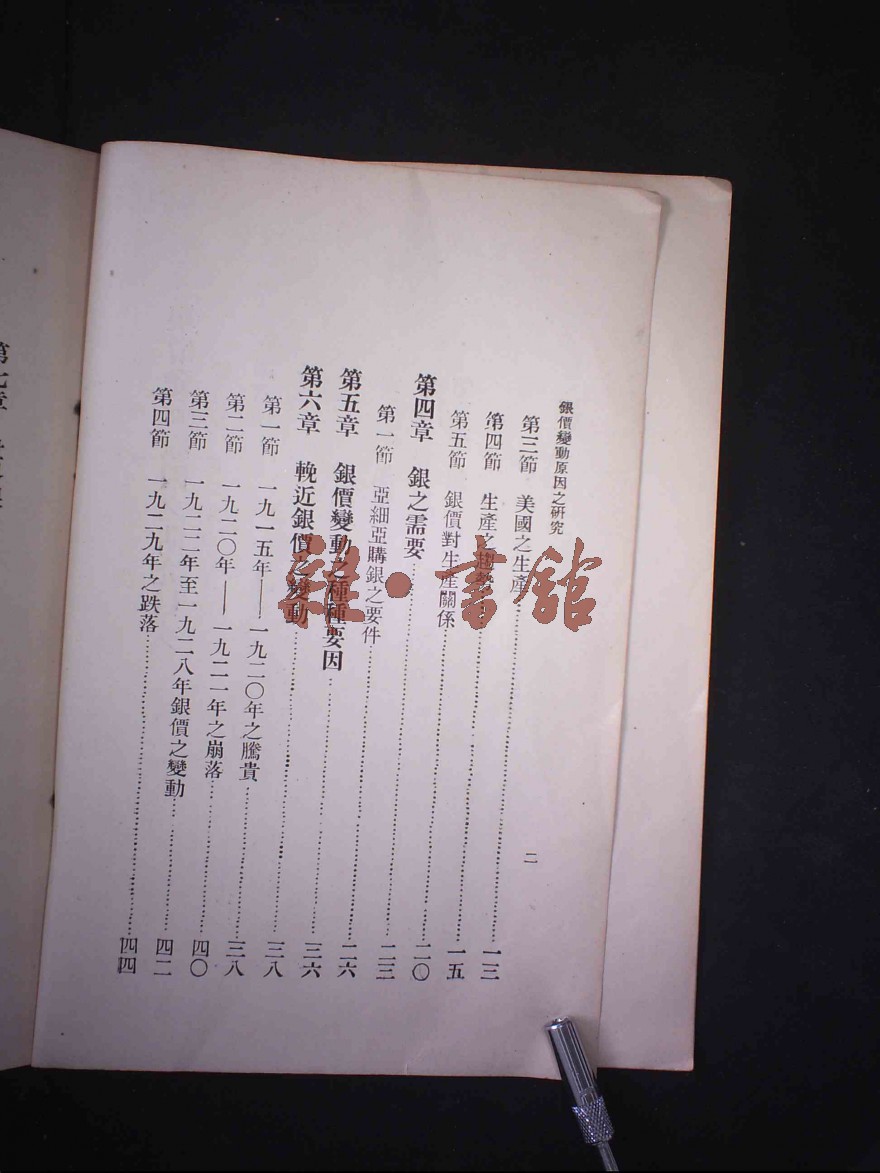 銀價變動原因之研究
二
第三節 美國之生產……一三
第四節 生產之趨勢……一五
第五節 銀價對生產關係……二〇
第四章 銀之需要……二三
第一節 亞細亞購銀之要件……二六
第五章 銀價變動之種種要因……三六
第六章 輓近銀價之變動……三八
第一節 一九一五年——一九二〇年之騰貴……三八
第二節 一九二〇年——一九二一年之崩落……四〇
第三節 一九二二年至一九二八年銀價之變動……四二
第四節 一九二九年之跌落……四四
雜·書館
第七章